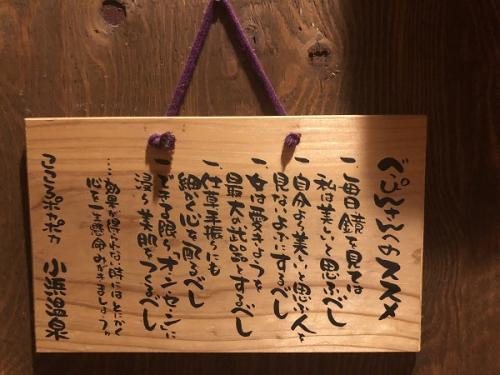 べっぴんさんへのススメ
一、毎日鏡を見ては
私は美しいと思うべし
一、自分より美しいと思う人を
見ないようにするべし
一、女は
最大の武器とするべし
一、仕草手振りにも
細かく心を配るべし
一、できる限り「オンセン」に
浸り美肌をつくるべし
……効果が見えない時にはとにかく
心を一生懸命みがきましょうっ
ココロポカポカ 小浜温泉